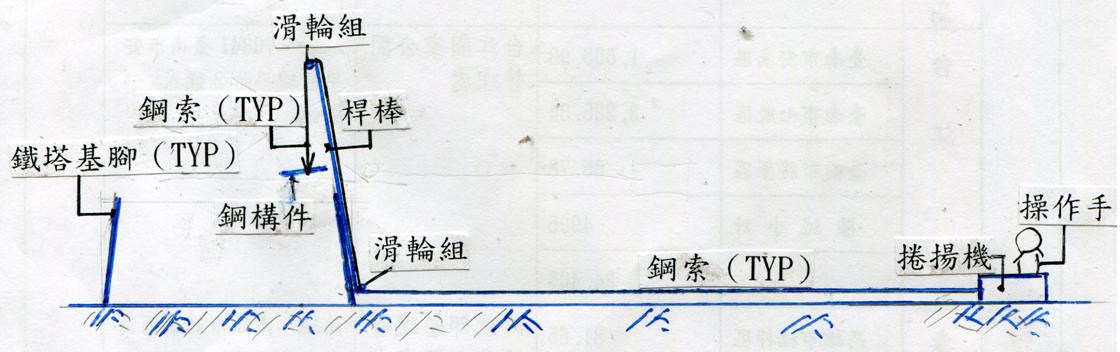 滑輪組
鋼索(TYP)
桿棒
鐵塔基腳(TYP)
鋼構件
滑輪組
鋼索(TYP)
捲揚機
操作手